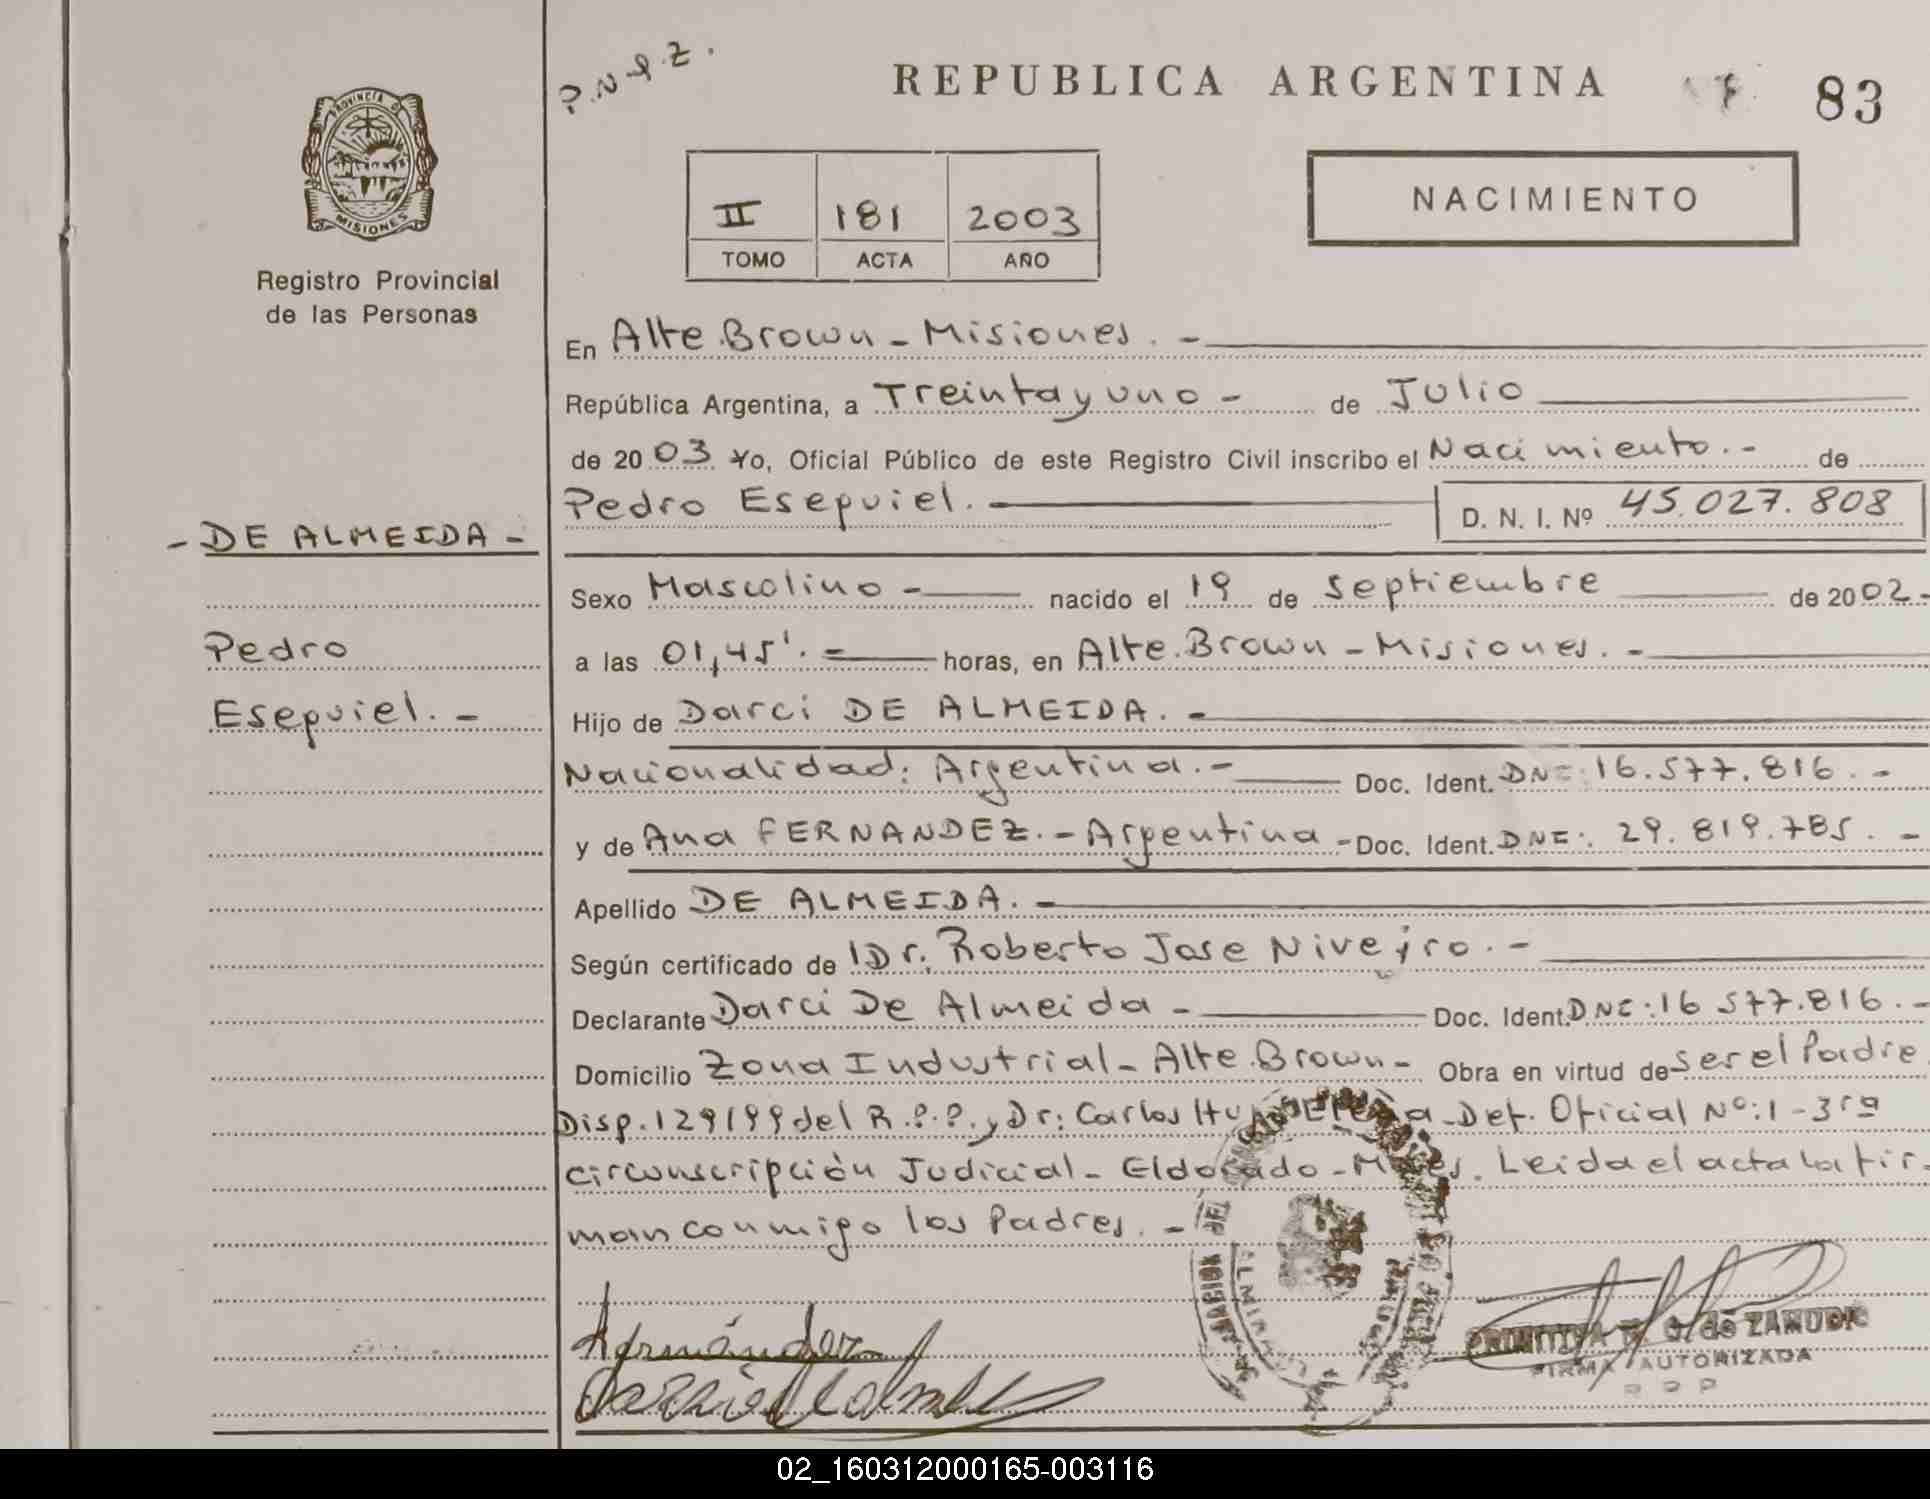 P.N.P.Z.
REPUBLICA ARGENTINA
83
PROVINCIA D
MISIONES
Registro Provincial
de las Personas
II 181 2003
TOMO ACTA AÑO
NACIMIENTO
En Alte.Brown - Misiones. -
República Argentina, a Treinta y uno - de Julio
de 2003 Yo, Oficial Público de este Registro Civil inscribo el Nacimiento. - de
Pedro Esequiel. D. N. I. Nº 45.027.808
- DE ALMEIDA -
Pedro
Esequiel. -
Sexo Masculino - nacido el 19 de septiembre de 2002 -
a las 01,45'. = horas, en Alte.Brown - Misiones. -
Hijo de Darci DE ALMEIDA. -
Nacionalidad: Argentina. - Doc. Ident. DNI: 16.577.816. -
y de Ana FERNANDEZ. - Argentina - Doc. Ident. DNI: 29.819.785. -
Apellido DE ALMEIDA. -
Según certificado de Dr. Roberto Jose Niveyro. -
Declarante Darci De Almeida - Doc. Ident. DNI: 16 577.816. -
Domicilio Zona Industrial - Alte.Brown - Obra en virtud de ser el Padre
Disp. 129/99 del R.P.P. y Dr: Carlos Def. Oficial Nº: 1 - 3ra
circunscripción Judicial - Eldorado - Mnes. Leida el acta la fir-
man conmigo los Padres. -
ZAMUDIO
FIRMA AUTORIZADA
R P P
02_160312000165-003116